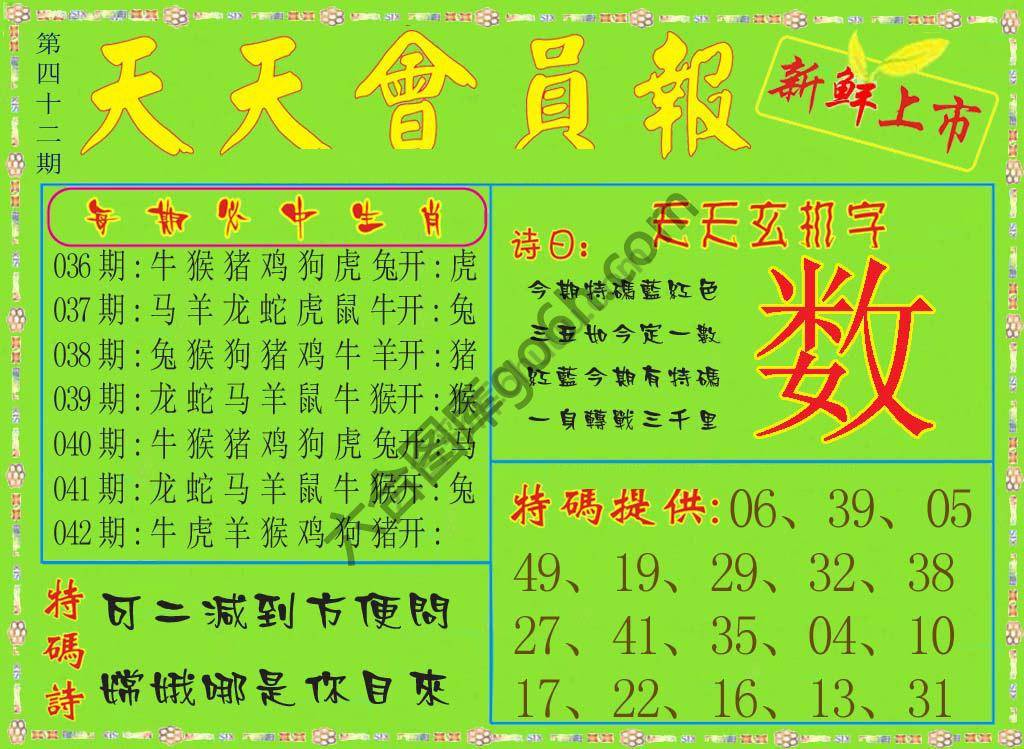 第四十二期
天天會員報
新鮮上市
每期必中生肖
036期:牛猴猪鸡狗虎兔开:虎
037期:马羊龙蛇虎鼠牛开:兔
038期:兔猴狗猪鸡牛羊开:猪
039期:龙蛇马羊鼠牛猴开:猴
040期:牛猴猪鸡狗虎兔开:马
041期:龙蛇马羊鼠牛猴开:兔
042期:牛虎羊猴鸡狗猪开:
天天玄机字
诗曰:
今期特碼藍紅色
三五如今定一數
紅藍今期有特碼
一身轉戰三千里
数
特碼詩
可二減到方便問
嫦娥哪是你目來
特碼提供:06、39、05
49、19、29、32、38
27、41、35、04、10
17、22、16、13、31
六合图库go6h.com